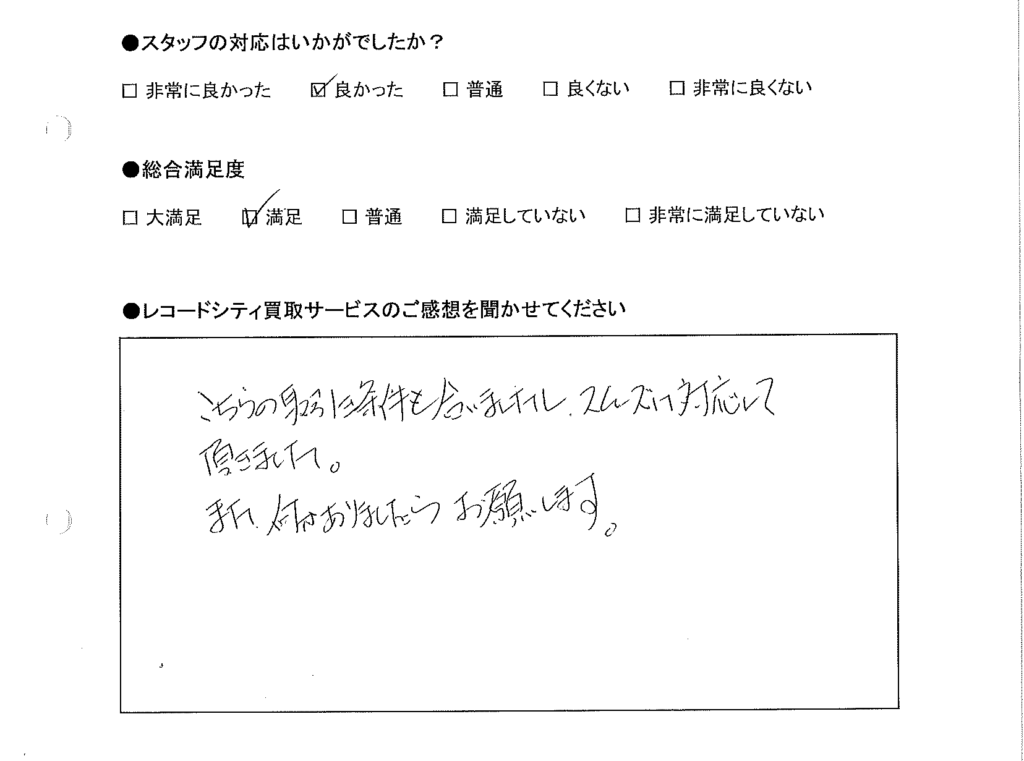 ●スタッフの対応はいかがでしたか？
□ 非常に良かった ☑ 良かった □ 普通 □ 良くない □ 非常に良くない
●総合満足度
□ 大満足 ☑ 満足 □ 普通 □ 満足していない □ 非常に満足していない
●レコードシティ買取サービスのご感想を聞かせてください
こちらの に条件も合いましたし、スムーズに対応して
頂きました。
また、何かありましたらお願いします。